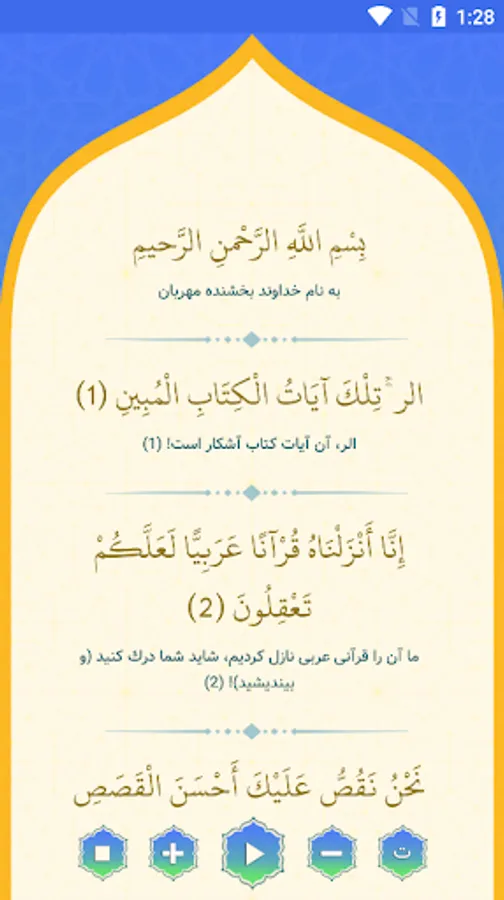 1:28
بِسْمِ اللَّهِ الرَّحْمنِ الرَّحیمِ
به نام خداوند بخشنده مهربان
الر ۚ تِلْكَ آيَاتُ الْكِتَابِ الْمُبِينِ (1)
الر، آن آیات کتاب آشکار است! (1)
إِنَّا أَنْزَلْنَاهُ قُرْآنًا عَرَبِيًّا لَعَلَّكُمْ
تَعْقِلُونَ (2)
ما آن را قرآنی عربی نازل کردیم، شاید شما درک کنید (و
بیندیشید)! (2)
نَحْنُ نَقُصُّ عَلَيْكَ أَحْسَنَ الْقَصَصِ
ت